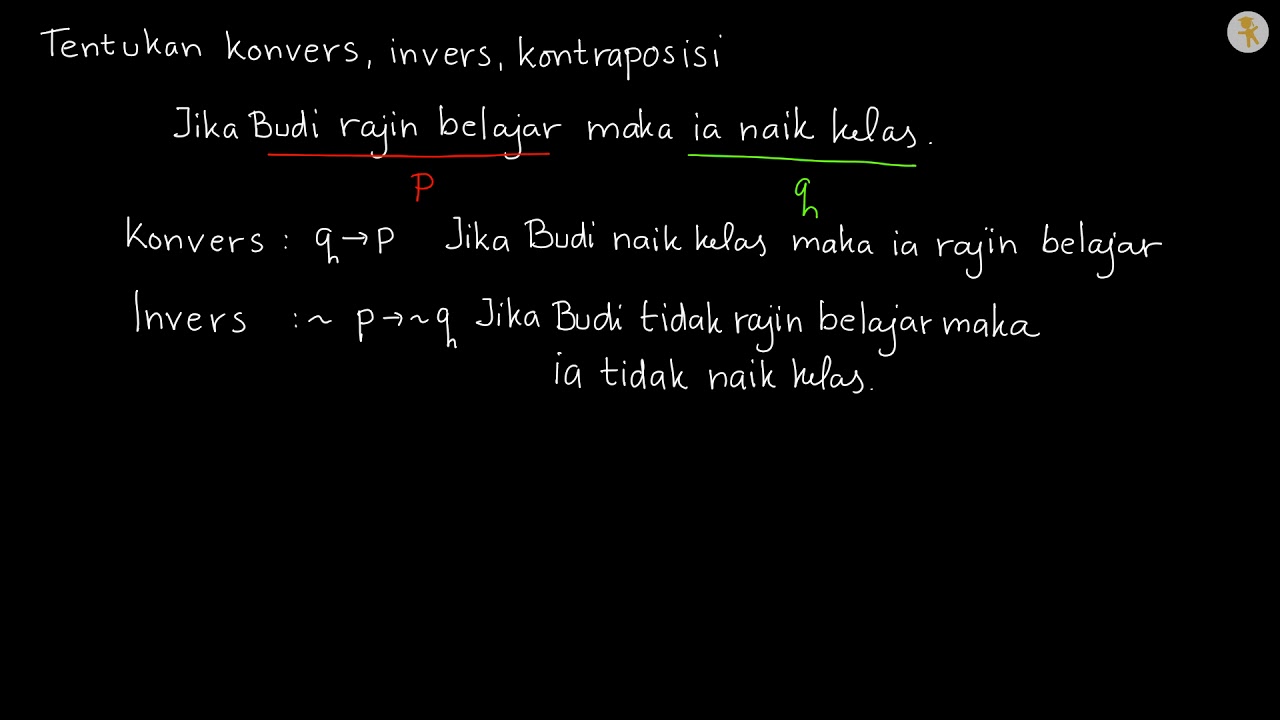 Tentukan konvers, invers, kontraposisi
Jika Budi rajin belajar maka ia naik kelas.
p q
Konvers : q→p Jika Budi naik kelas maka ia rajin belajar
Invers : ~ p→~q Jika Budi tidak rajin belajar maka
ia tidak naik kelas.